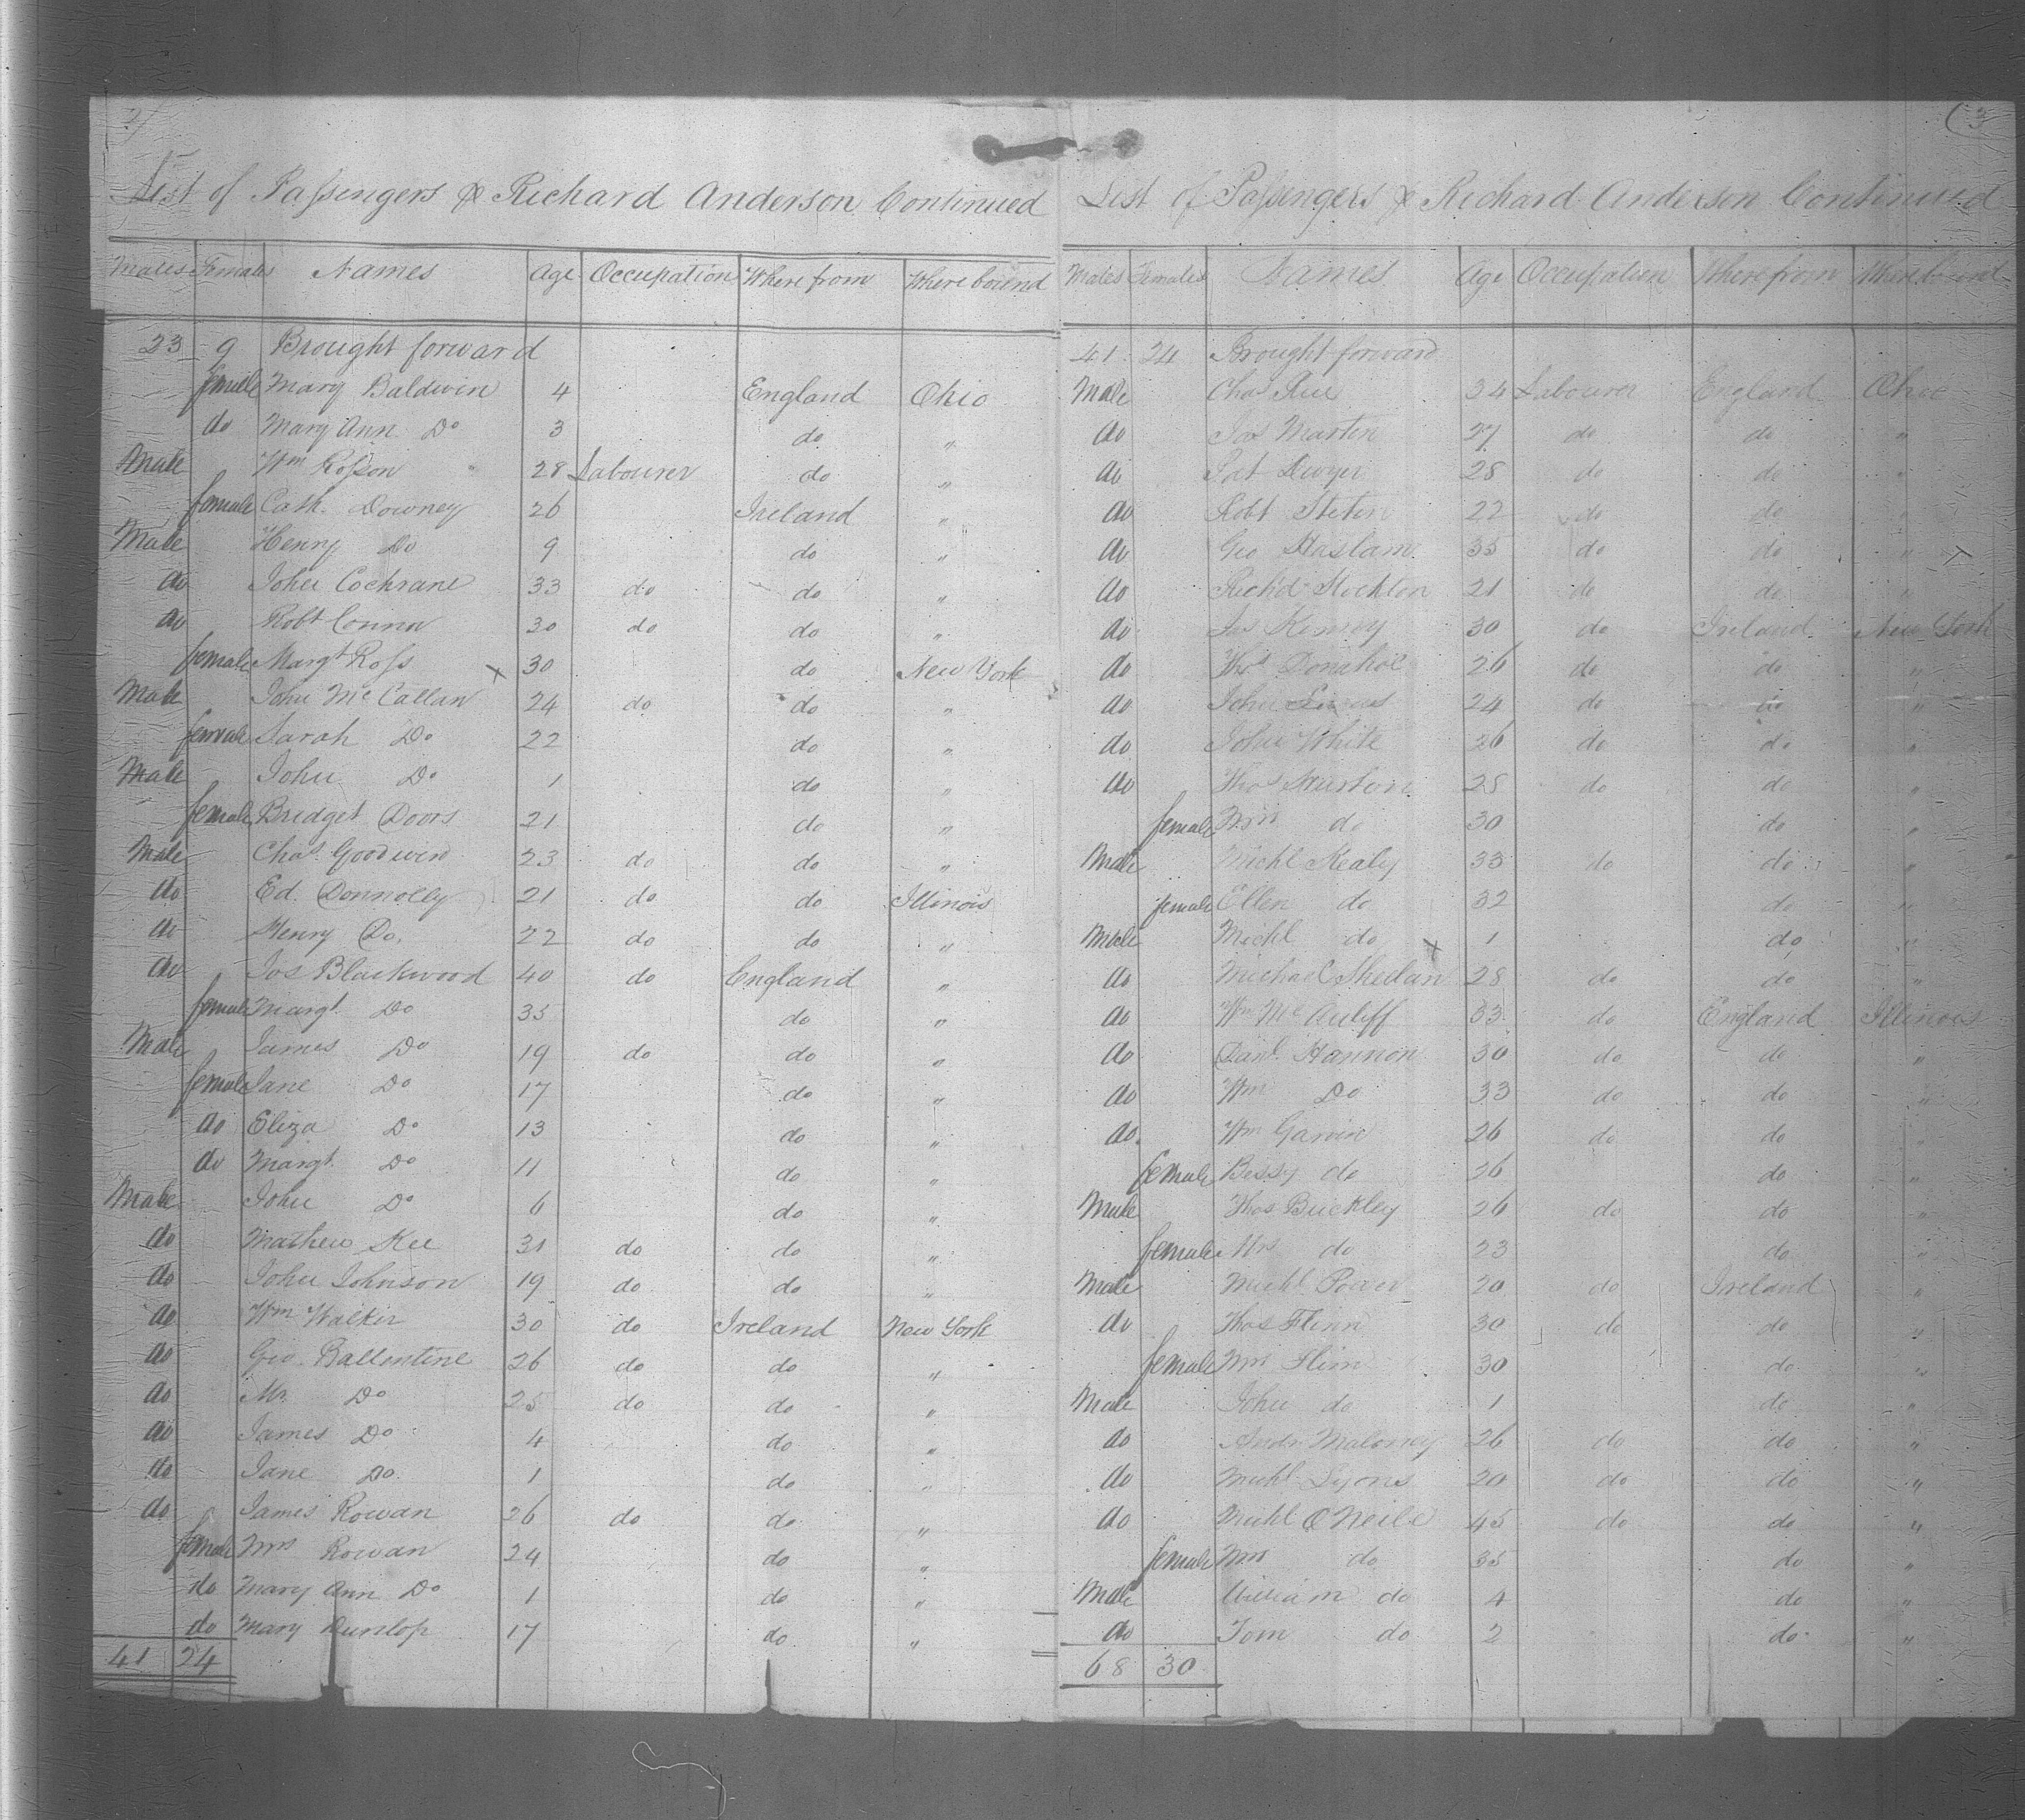 2
List of Passengers p Richard Anderson Continued
Males Females Names Age Occupation Where from Where bound
23 9 Brought forward
female Mary Baldwin 4 England Ohio
do Mary Ann Do 3 do "
Male Wm Rosson " 28 Labourer do "
female Cath. Downey 26 Ireland "
Male Henry Do 9 do "
do John Cochrane 33 do do "
do Robt Connor 30 do do "
female Margt Ross x 30 do New York
Male John McCallan 24 do do "
female Sarah Do 22 do "
Male John Do 1 do "
female Bridget Doors 21 do "
Male Chas. Goodwin 23 do do "
do Ed. Donnolly 21 do do Illinois
do Henry Do. 22 do do "
do Jos Blackwood 40 do England "
female Margt. Do 35 do "
Male James Do 19 do do "
female Jane Do 17 do "
do Eliza Do 13 do "
do Margt. Do 11 do "
Male John Do 6 do "
do Mathew Kee 31 do do "
do John Johnson 19 do do "
do Wm Walker 30 do Ireland New York
do Geo. Ballentine 26 do do "
do Mr. Do 25 do do "
do James Do 4 do "
do Jane Do. 1 do "
do James Rowan 26 do do "
female Mrs Rowan 24 do "
do Mary Ann Do 1 do "
do Mary Dunlop 17 do "
41 24
3
List of Passengers p Richard Anderson Continued
Males Females Names Age Occupation Where from Where bound
41 24 Brought forward
Male Chas 34 Labourer England Ohio
do Jas Martin 27 do do "
do Pat Dwyer 28 do do "
do Robt 22 do do "
do Geo Haslam 35 do do " x
do Rich'd Stockton 21 do do "
do Jas Kenny 30 do Ireland New York
do Thos Donahoe 26 do do "
do John 24 do do "
do John White 26 do do "
do Thos 28 do do "
female Mrs do 30 do "
Male Michl Healy 33 do do "
female Ellen do 32 do "
Male Michl do x 1 do "
do Michael Shedan 28 do do "
do Wm McAuliff 33 do England Illinois
do Danl. Hannon 30 do do "
do Wm Do 33 do do "
do. Wm Garvin 26 do do "
female Bessy do 26 do "
Male Thos Buckley 26 do do "
female Mrs do 23 do "
Male Michl. Power 20 do Ireland "
do Thos Flinn 30 do do "
female Mrs Flinn 30 do "
Male John do 1 do "
do Andr. Maloney 26 do do "
do Michl. Lyons 20 do do "
do Michl O'Neile 45 do do "
female Mrs do 35 do "
Male William do 4 do "
do Tom do 2 do "
68 30